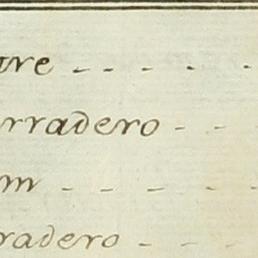 rradero - -
m - - - -
radero - - -